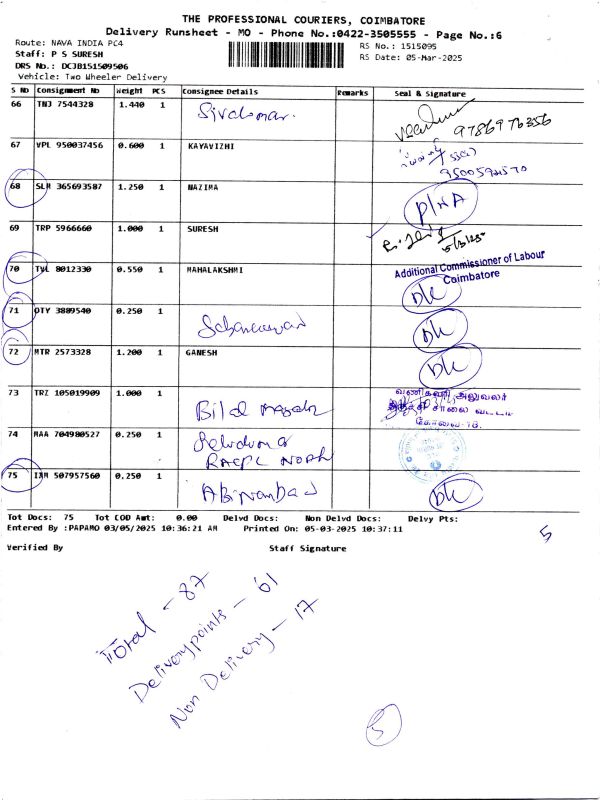 THE PROFESSIONAL COURIERS, COIMBATORE
Delivery Runsheet - MO - Phone No.:0422-3505555 - Page No.:6
Route: NAVA INDIA PC4
RS No.: 1515095
Staff: P S SURESH
RS Date: 05-Mar-2025
DRS No.: DCJB151509506
Vehicle: Two Wheeler Delivery
S No Consignment No Weight PCS Consignee Details Remarks Seal & Signature
66 TNJ 7544328 1.440 1 9786976356
67 VPL 950037456 0.600 1 KAYAVIZHI
68 SLM 365693587 1.250 1 NAZIMA
69 TRP 5966660 1.000 1 SURESH
70 TVL 8012330 0.550 1 MAHALAKSHMI Additional Commissioner of Labour
Coimbatore
DK
71 OTY 3889540 0.250 1 DK
72 MTR 2573328 1.200 1 GANESH DK
73 TRZ 105019909 1.000 1 Bilal
74 MAA 704980527 0.250 1
75 IXM 507957560 0.250 1 DK
Tot Docs: 75 Tot COD Amt: 0.00 Delvd Docs: Non Delvd Docs: Delvy Pts:
Entered By :PAPAMO 03/05/2025 10:36:21 AM Printed On: 05-03-2025 10:37:11
5
Verified By Staff Signature
Total - 87
Deliverypoints - 61
Non Delivery - 17
5